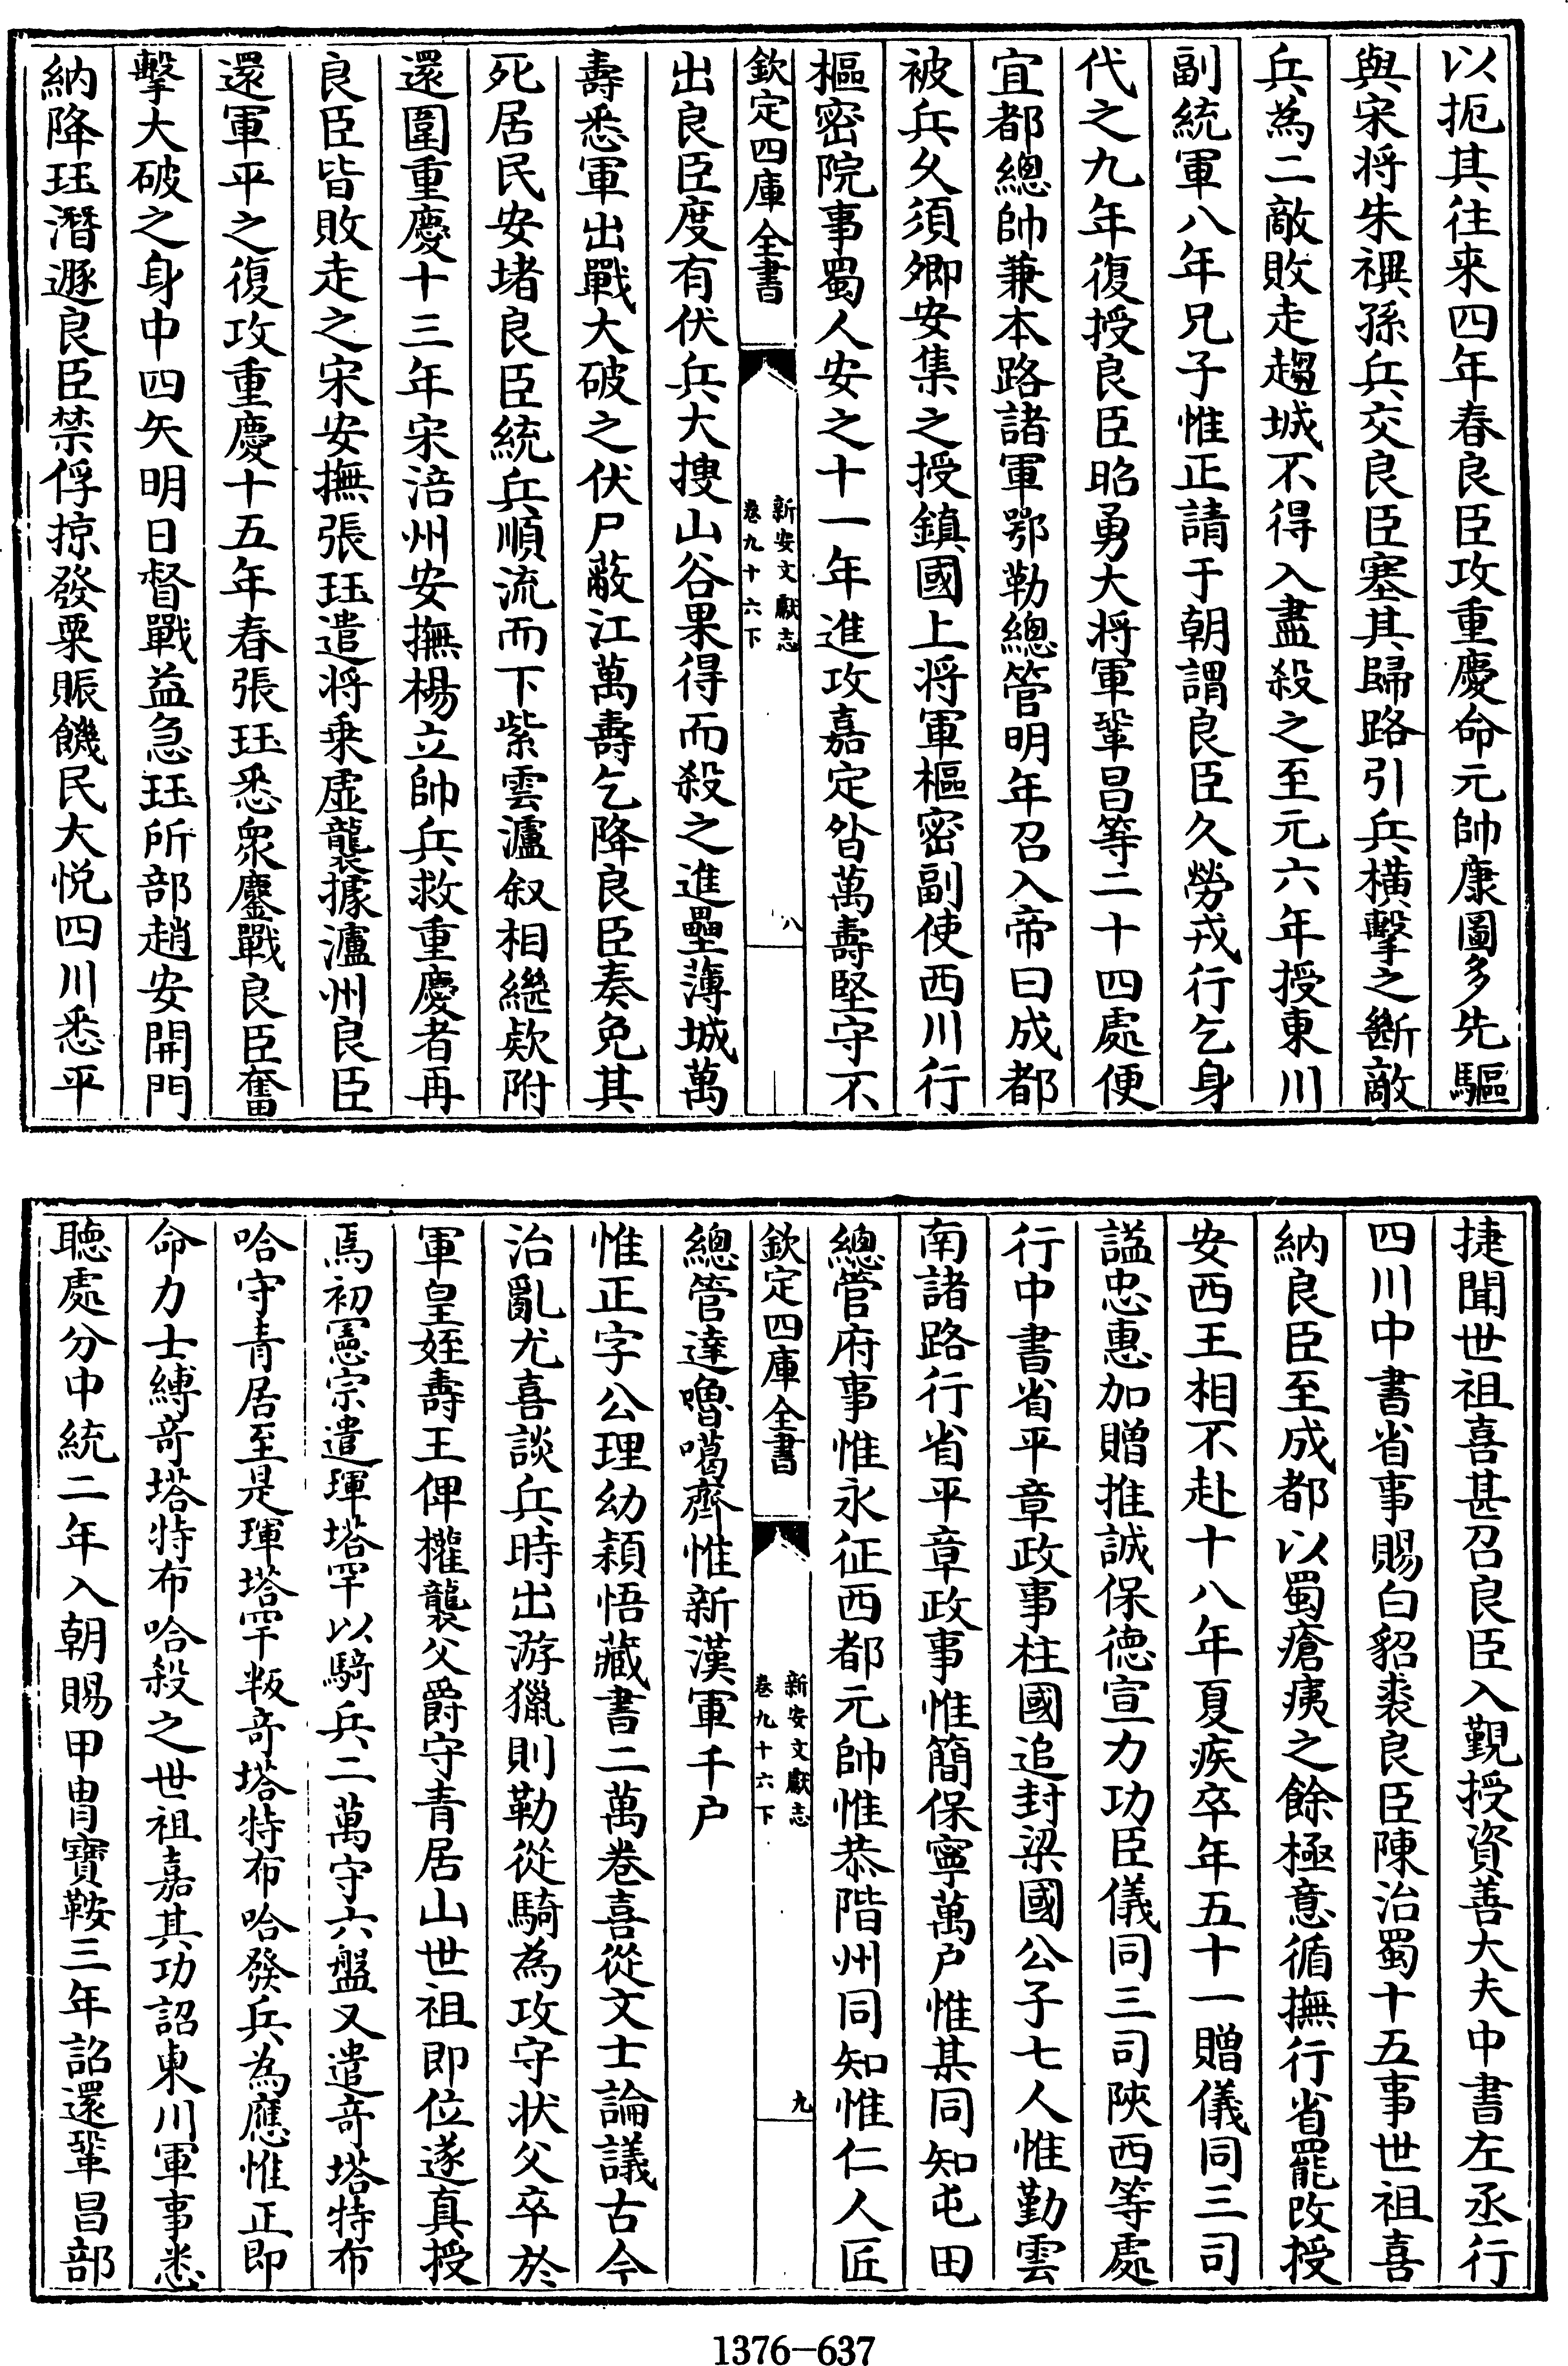 以扼其往来四年春良臣攻重慶命元帥康圖多先驅
與宋将朱禩孫兵交良臣塞其歸路引兵橫擊之斷敵
兵為二敵敗走趨城不得入盡殺之至元六年授東川
副統軍八年兄子惟正請于朝謂良臣久勞戎行乞身
代之九年復授良臣昭勇大将軍鞏昌等二十四處便
宜都總帥兼本路諸軍鄂勒總管明年召入帝曰成都
被兵久須卿安集之授鎮國上将軍樞密副使西川行
樞密院事蜀人安之十一年進攻嘉定昝萬壽堅守不
欽定四庫全書
新安文獻志
卷九十六下
八
出良臣度有伏兵大搜山谷果得而殺之進壘薄城萬
壽悉軍出戰大破之伏尸蔽江萬壽乞降良臣奏免其
死居民安堵良臣統兵順流而下紫雲瀘叙相繼欵附
還圍重慶十三年宋涪州安撫楊立帥兵救重慶者再
良臣皆敗走之宋安撫張珏遣将乗虚襲據瀘州良臣
還軍平之復攻重慶十五年春張珏悉衆鏖戰良臣奮
擊大破之身中四矢明日督戰益急珏所部趙安開門
納降珏潛遯良臣禁俘掠發粟賑饑民大悅四川悉平
捷聞世祖喜甚召良臣入覲授資善大夫中書左丞行
四川中書省事賜白貂裘良臣陳治蜀十五事世祖喜
納良臣至成都以蜀瘡痍之餘極意循撫行省罷改授
安西王相不赴十八年夏疾卒年五十一贈儀同三司
謚忠惠加贈推誠保德宣力功臣儀同三司陜西等處
行中書省平章政事柱國追封梁國公子七人惟勤雲
南諸路行省平章政事惟簡保寧萬户惟某同知屯田
總管府事惟永征西都元帥惟恭階州同知惟仁人匠
欽定四庫全書
新安文獻志
卷九十六下
九
總管達嚕噶齊惟新漢軍千户
惟正字公理幼穎悟藏書二萬卷喜從文士論議古今
治亂尤喜談兵時出游獵則勒從騎為攻守状父卒於
軍皇姪壽王俾權襲父爵守青居山世祖即位遂真授
焉初憲宗遣琿塔罕以騎兵二萬守六盤又遣竒塔特布
哈守青居至是琿塔罕叛竒塔特布哈發兵為應惟正即
命力士縛竒塔特布哈殺之世祖嘉其功詔東川軍事悉
聽處分中統二年入朝賜甲冑寶鞍三年詔還鞏昌部
1376-637